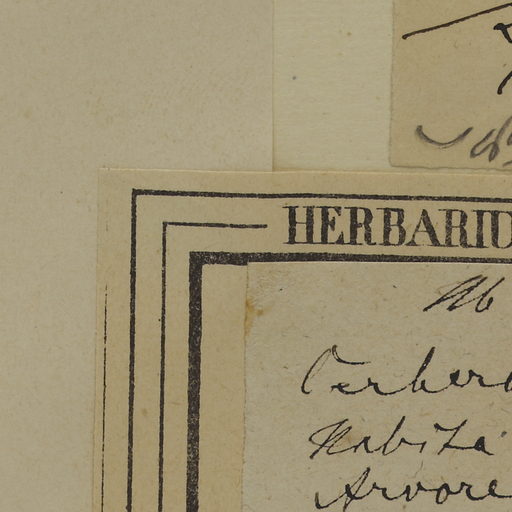 HERBARIU
Ab
Cerbera
Habita
Arvore